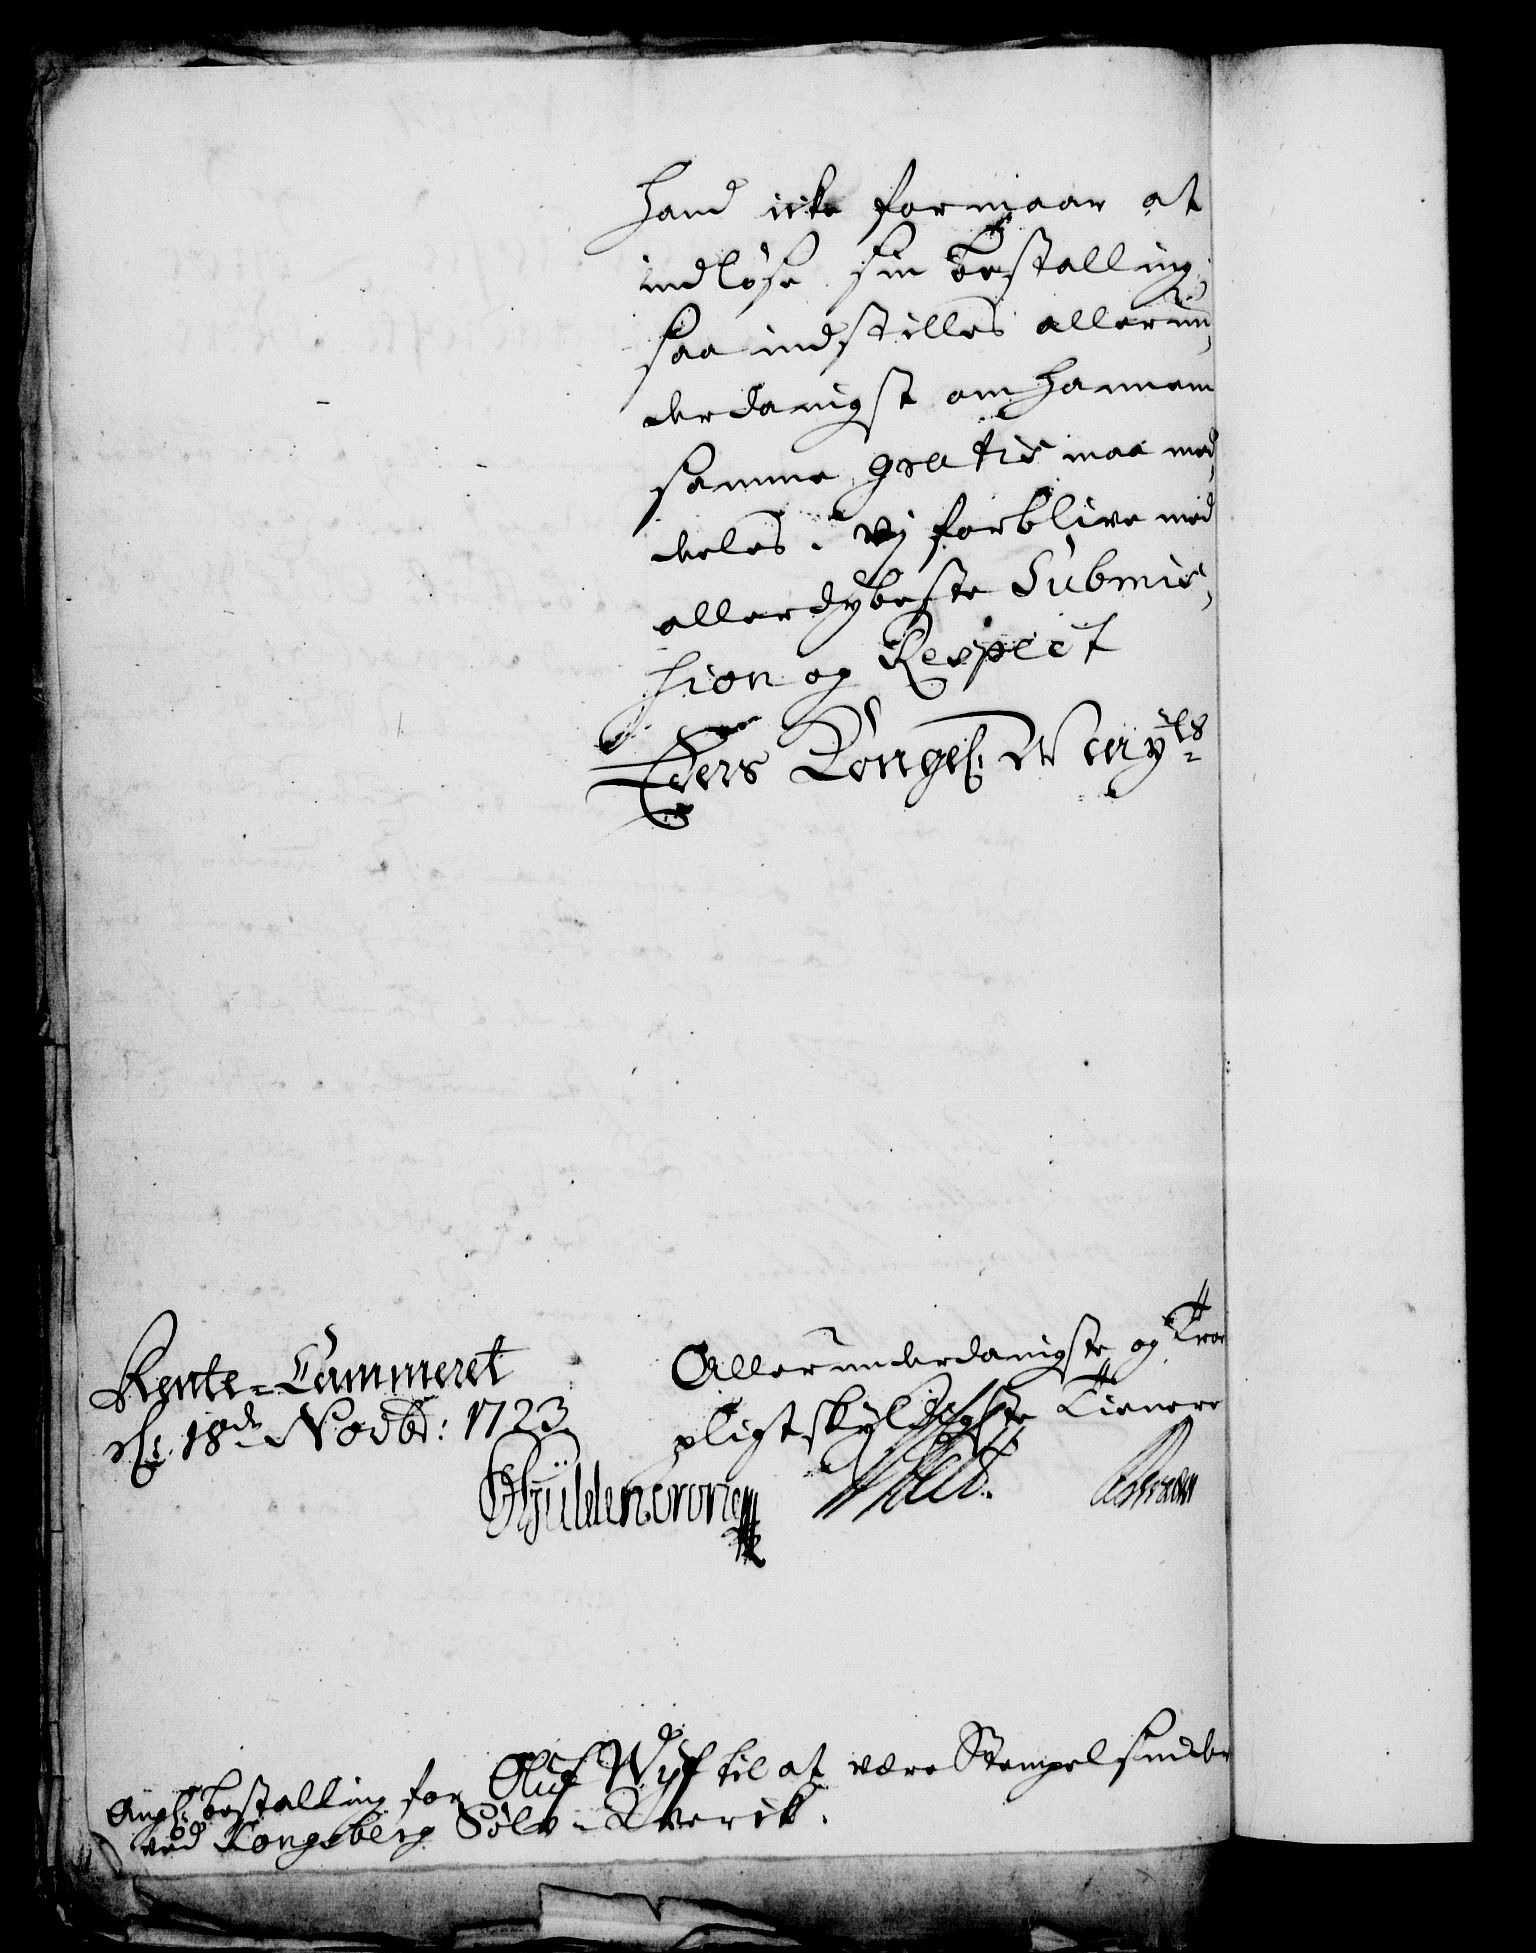 hand icke formaar at
indløse sin bestalling,
saa indstilles allerun,
derdanigst om hannem
samme gratis maa med,
deeles. Vj forblive med
allerdybeste Submis,
sion og Respect
Eders Kongel: May:ts
Rente-Cammeret
d: 18de Novbr: 1723
Allerunderdanigste og Troe
pligtskyldigste Tienere
Gyldencrone
Ang: bestalling for Oluf Wif til at være Stempelsnider
ved Kongsberg Sølv-Verck.